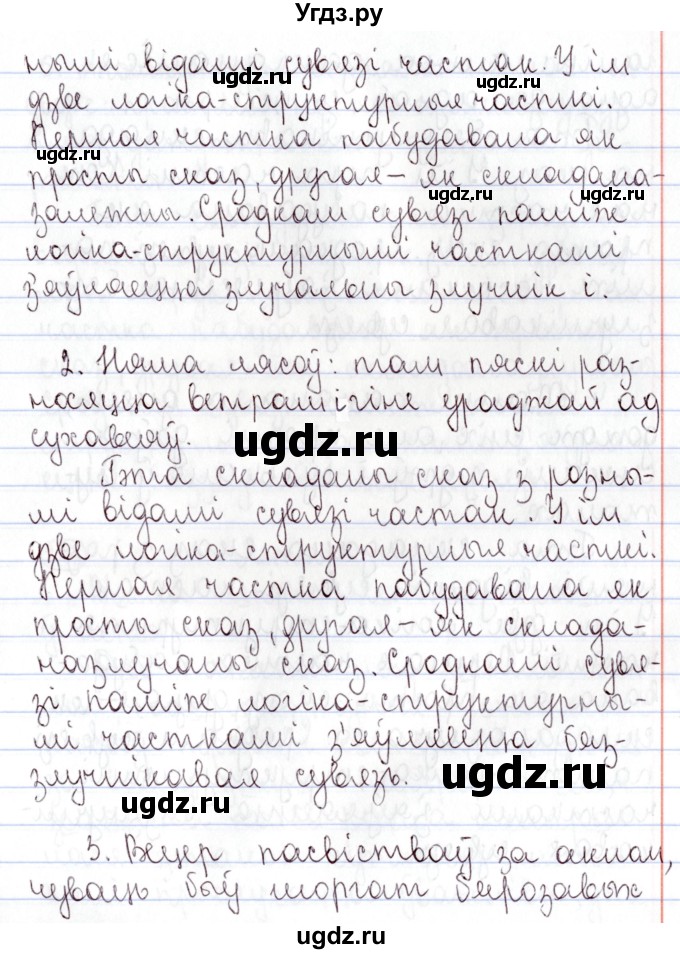 Угдз.ру
нымі відамі сувязі частак. У ім
ugdz.ru
ugdz.ru
дзве логіка-структурныя часткі.
ugdz.ru
Першая частка пабудавана як
ugdz.ru
просты сказ, другая – як складана-
ugdz.ru
ugdz.ru
залежны. Сродкам сувязі паміж
логіка-структурнымі часткамі
з'яўляецца злучальны злучнік і.
2. Няма лясоў: там пяскі раз-
носяцца ветрам і гіне ураджай ад
сухавеяў.
ugdz.ru
Гэта складаны сказ з розны-
мі відамі сувязі частак. У ім
дзве логіка-структурныя часткі.
Першая частка пабудавана як
просты сказ, другая – як склада-
назлучаны сказ. Сродкамі сувя-
зі паміж логіка-структурны-
мі часткамі з'яўляецца бяз-
злучнікавая сувязь.
ugdz.ru
ugdz.ru
3. Вецер пасвістваў за акном,
чуваць быў шоргат бярозавых
ugdz.ru